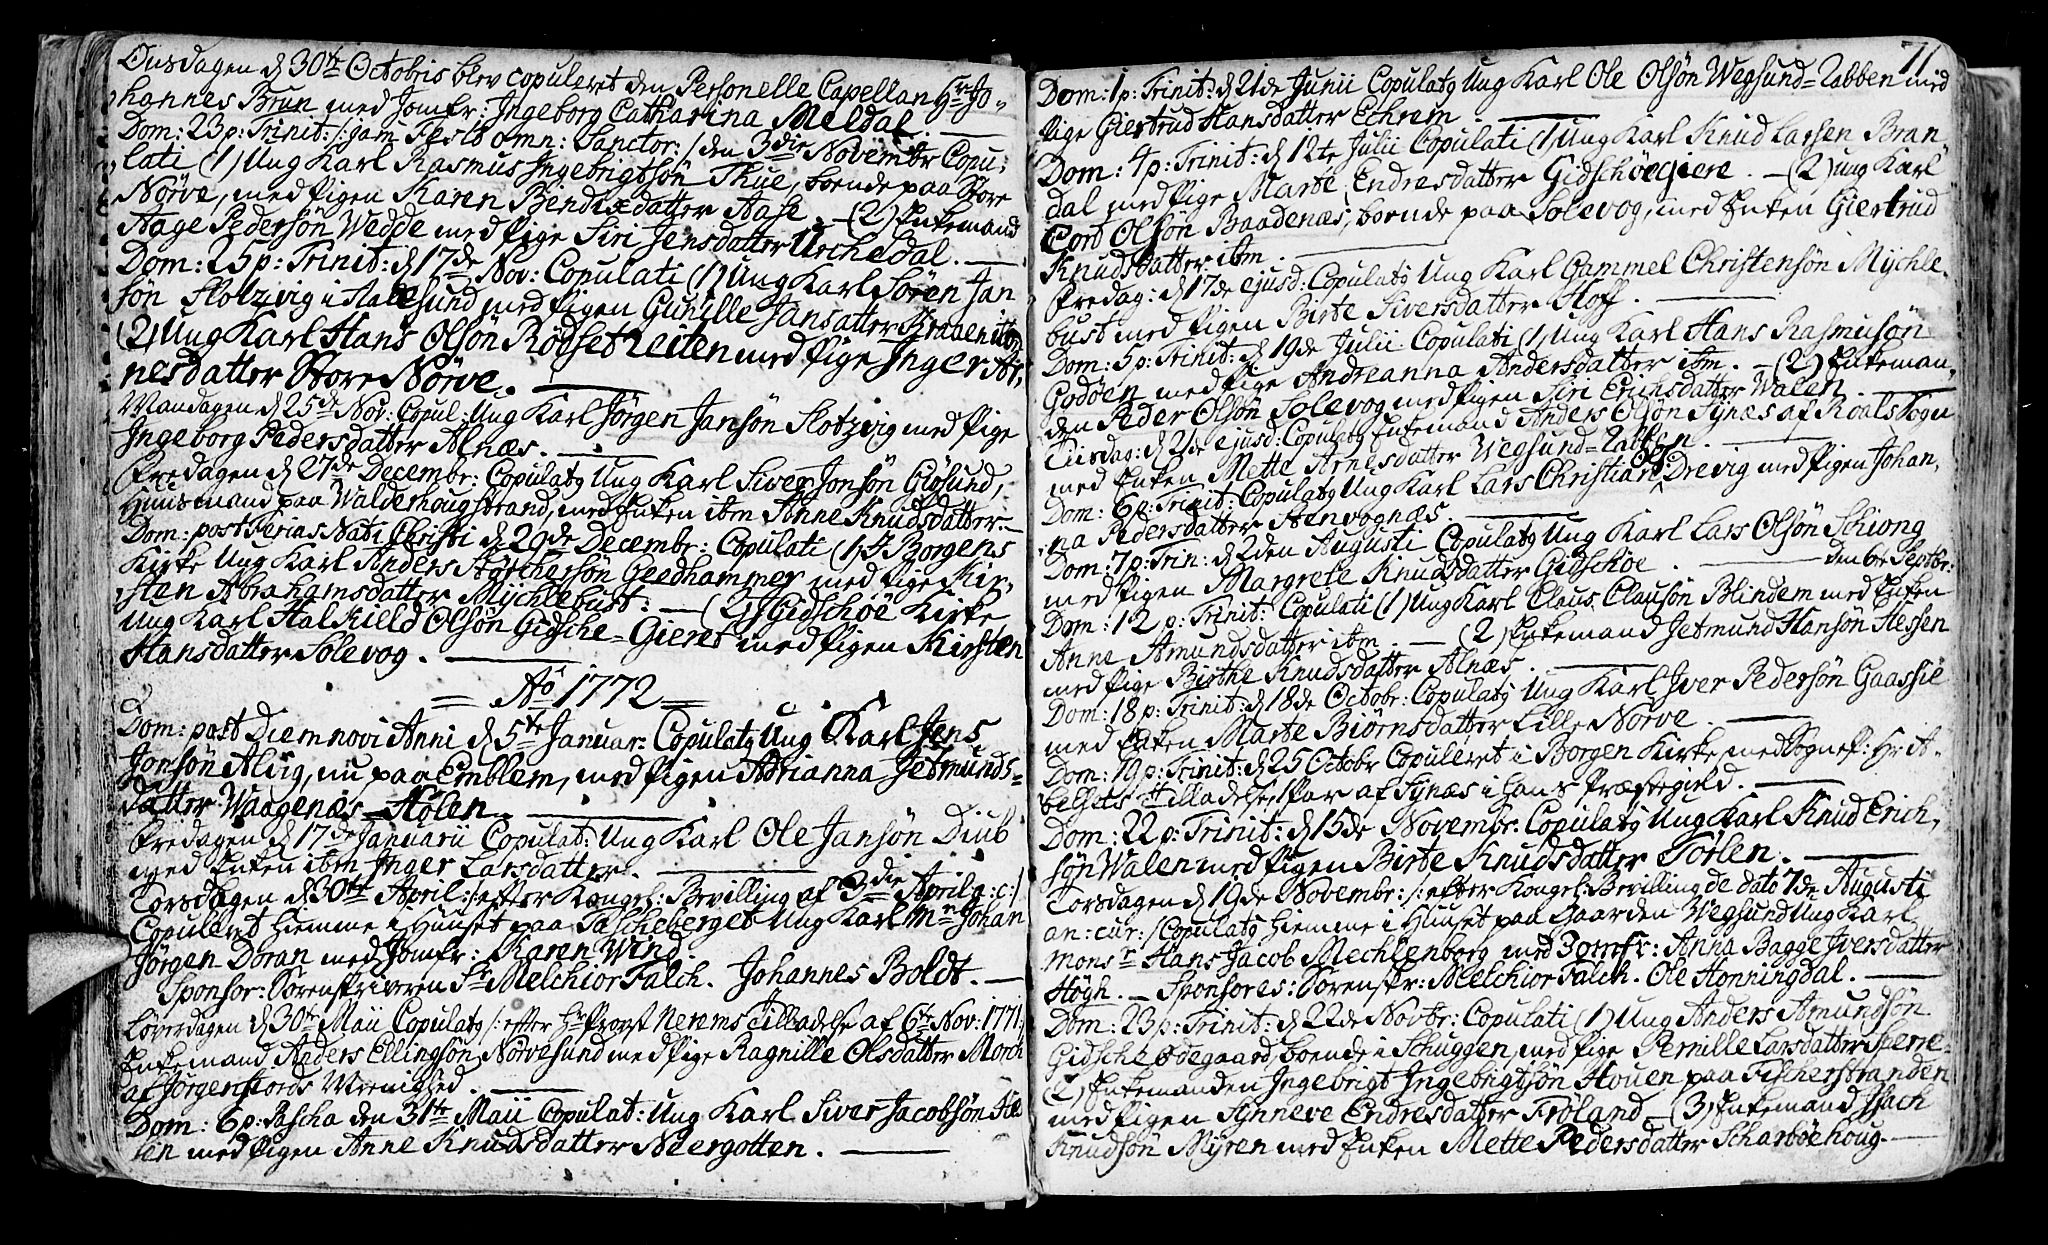 Onsdagen d 30te Octobris blev copuleret den Personelle Capellan Hr Jo-
hannes Brun med Jomfr: Ingeborg Catharina Meldal.
Dom: 23 p: Trinit: /: jam Festo omn: Sanctor: / den 3die November Copu-
lati (1) Ung Karl Rasmus Ingebrigtsøn Thue, boende paa Store
Nørve, med Pigen Karen Bendixdatter Aase. - (2) Enkemand
Aage Pedersøn Wedde med Pige Siri Jensdatter Urchedal.
Dom: 25 p: Trinit: d 17de Nov: Copulati (1) Ung Karl Søren Jan
søn Slotzvig i Aalesund med Pigen Gunille Jansdatter Kraaen ibm
(2) Ung Karl Hans Olsøn Rødset Reiten med Pige Inger Ar-
nesdatter Store Nørve.
Mandagen d 25de Nov: Copul: Ung Karl Jørgen Jansøn Slotzvig med Pige
Ingeborg Pedersdatter Alnæs.
Fredagen d 27de Decembr: Copulatq Ung Karl Siver Jonsøn Giøsund,
Huusmand paa Walderhougstrand, med Enken ibm Anne Knudsdatter.
Dom: post Ferias Nati Christi d 29de Decembr: Copulati (1) I Borgens
Kirke Ung Karl Anders Aschersøn Geedhammer med Pige Kir-
sten Abrahamsdatter Mychlebust: - (2) I Gidschøe Kirke
Ung Karl Halkield Olsøn Gidsche-Gieret med Pigen Kirsten
Hansdatter Solevog.
Ao 1772
Dom: post Diem novi Anni d 5te Januar: Copulatq Ung Karl Jens
Jonsøn Aling, nu paa Emblem, med Pigen Adrianna Jetmunds-
datter Waagenæs-Holen.
Fredagen d 17de Januarii Copulat: Ung Karl Ole Jansøn Diub
med Enken ibm Inger Larsdatter.
Torsdagen d 30te April: /: efter Kongel: Bevilling af 3die April a: c: /
Copulleret hiemme i Huuset paa Falscheberget Ung Karl Mr Johan
Jørgen Doran med Jomfr: Karen Wind.
Sponsor: Sorenskriveren Sr Melchior Falch. Johannes Boldt.
Løverdagen d 30te Maii Copulatq /: efter Hr Provst Nenns Tilladelse af 6te Nov: 1771:/
Enkemand Anders Ellingsøn Nørvesund med Pige Ragnille Olsdatter Morch
af Jørgenfiords Menighed.
Dom: 6 p: Pascha den 31te Maii Copulat: Ung Karl Siver Jacobsøn
sen med Pigen Anne Knudsdatter Neergotten.
71
Dom: 1 p: Trinit: d 21de Junii Copulatq Ung Karl Ole Olsøn Wegsund-Rabben med
Pige Giertrud Hansdatter Echrem.
Dom: 4 p: Trinit: d 12te Julii Copulati (1) Ung Karl Knud Lassen Bran-
dal med Pige Marte Endresdatter Gidschøegiere. - (2) ung Karl
Cord Olsøn Baadenæs, boende paa Solevog, med Enken Giertrud
Knudsdatter ibm.
Fredag: d 17de ejusd: Copulatq Ung Karl Gammel Christensøn Mychle-
bust med Pigen Birte Siversdatter Hoff.
Dom: 5 p: Trinit: d 19de Julii Copulati (1) Ung Karl Hans Rasmusøn
Godøen med Pige Andreanna Andersdatter ibm. - (2) Enkeman-
den Peder Olsøn Solevog med Pigen Siri Erichsdatter Walen.
Tiisdag: d 21de ejusd: Copulatq Enkemand Anders Olsøn Synæs af Roals Sogn
med Enken Mette Arnesdatter Wegsund-Rabben.
Dom: 6 p: Trinit: Copulatq Ung Karl Lars Christian Drevig med Pigen Johan-
na Pedersdatter Stenvognæs
Dom: 7 p: Trin: d 2den Augusti Copulatq Ung Karl Lars Olsøn Schiong
med Pigen Margrete Knudsdatter Gidschøe. - den 6te Septbr:
Dom: 12 p: Trinit: Copulati (1) Ung Karl Claus Clausøn Blindem med Enken
Anne Amundsdatter ibm. - (2) Enkemand Jetmund Hansøn Hessen
med Pige Birthe Knudsdatter Alnæs.
Dom: 18 p: Trinit: d 18de Octobr: Copulatq Ung Karl Iver Pedersøn Gaassie
med Enken Marte Biørnsdatter Lille Nørve.
Dom: 19 p: Trinit: d 25 Octobr Copuleret i Borgen Kirke, med Sognepr: Hr A-
belsets Tilladelse, 1 Par af Synæs i Hans Præstegield.
Dom: 22 p: Trinit: d 15de Novembr: Copulatq Ung Karl Knud Erich-
søn Walen med Pigen Birte Knudsdatter Tørlen.
Torsdagen d 19de Novembr: /: efter Kongel: Bevilling de dato 7de Augusti
an: cur: / Copulatq hiemme i Huuset paa Gaarden Wegsund Ung Karl
Monsr Hans Jacob Mechlenborg med Jomfr: Anna Bagge Iversdatter
Høgh. - Sponsores: Sorenskr: Melchior Falch. Ole Honningdal.
Dom: 23 p: Trinit: d 22de Novbr: Copulati (1) Ung Anders Amundsøn
Gidsche Ødegaard, boende i Schuggen, med Pige Pernille Larsdatter Sperre-
(2) Enkemanden Ingebrigt Ingebrigtsøn Houen paa Fischerstranden
med Pigen Synneve Endresdatter Frøland - (3) Enkemand Isach
Knudsøn Myren med Enken Mette Pedersdatter Scharbøehoug.